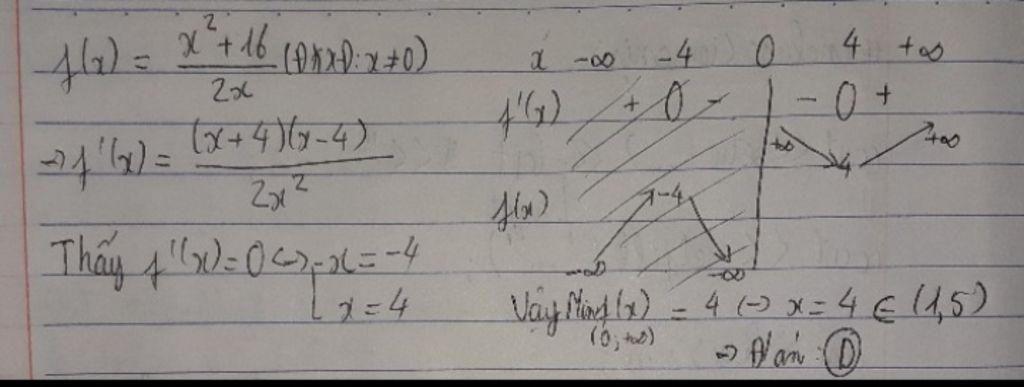 f(x) = (x²+16)/(2x) (ĐKXĐ: x≠0)
→ f'(x) = ((x+4)(x-4))/(2x²)
Thấy f'(x)=0 <=> [x=-4
x=4
x -∞ -4 0 4 +∞
f'(x) + 0 - || - 0 +
f(x) -∞ -4 -∞ || +∞ 4 +∞
Vậy Min f(x) = 4 <-> x=4 ∈ (1,5)
(0;+∞)
=> Đ/án: D